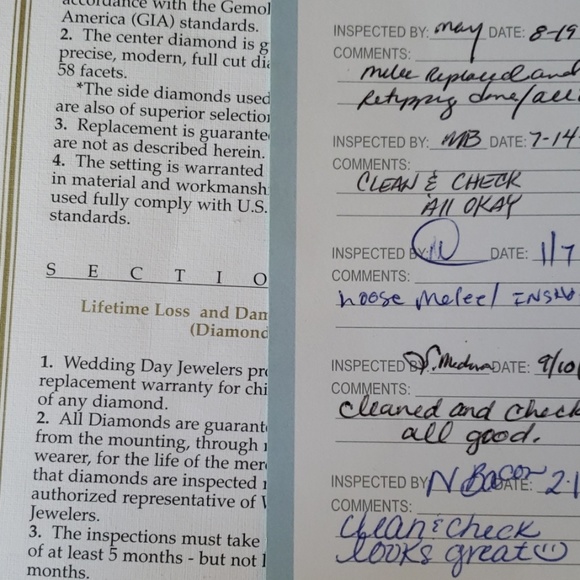 accordance with the Gemol
America (GIA) standards.
2. The center diamond is g
precise, modern, full cut dia
58 facets.
*The side diamonds used
are also of superior selection
3. Replacement is guarante
are not as described herein.
4. The setting is warranted
in material and workmansh
used fully comply with U.S.
standards.
S E C T I O
Lifetime Loss and Dam
(Diamond
1. Wedding Day Jewelers pro
replacement warranty for chi
of any diamond.
2. All Diamonds are guarant
from the mounting, through n
wearer, for the life of the mer
that diamonds are inspected
authorized representative of W
Jewelers.
3. The inspections must take
of at least 5 months - but not l
months.
INSPECTED BY: May DATE: 8-19
COMMENTS:
melee Replaced and
Retipping done/all
INSPECTED BY: MB DATE: 7-14-
COMMENTS:
CLEAN & CHECK
All OKAY
INSPECTED BY: DATE: 1/7
COMMENTS:
Loose Melee/
INSPECTED BY: DATE: 9/10
COMMENTS:
Cleaned and Check
all good.
INSPECTED BY: N Bacon DATE: 2-1
COMMENTS:
Clean & check
looks great